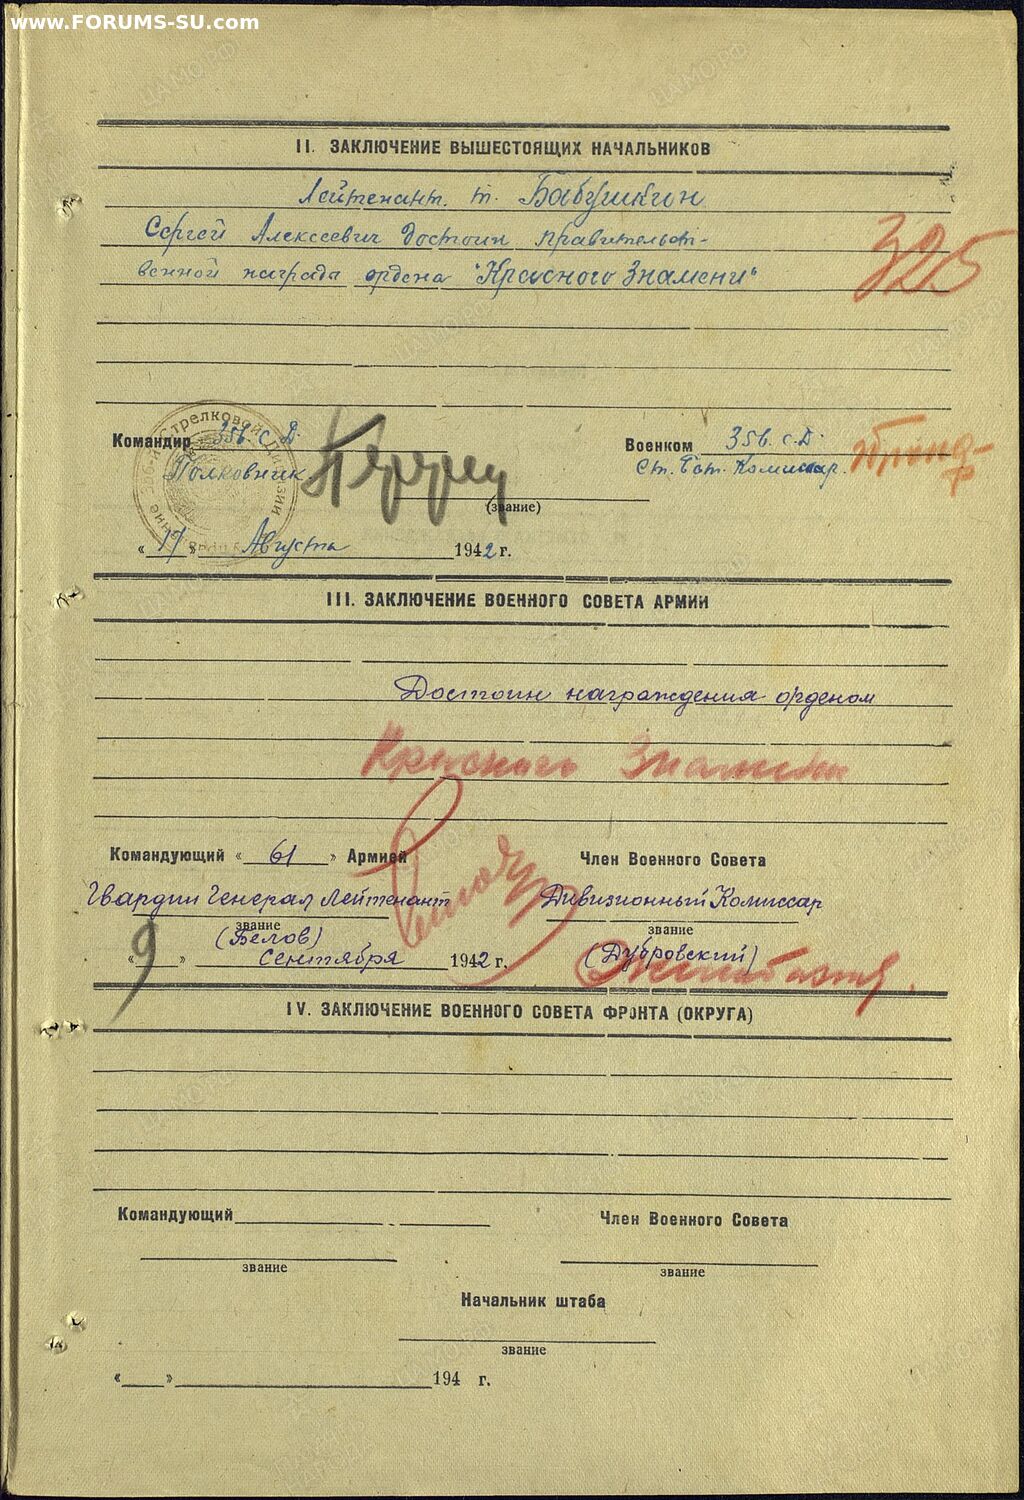 www.FORUMS-SU.com
II. ЗАКЛЮЧЕНИЕ ВЫШЕСТОЯЩИХ НАЧАЛЬНИКОВ
Лейтенант т. Бабушкин
Сергей Алексеевич достоин правительст-
венной награда ордена "Красного Знамени"
325
Командир 356. с. Д. Военком 356. с. Д.
Полковник Ст. Бат. Комиссар.
(звание)
Августа 1942 г.
III. ЗАКЛЮЧЕНИЕ ВОЕННОГО СОВЕТА АРМИИ
Достоин награждения орденом
Красного Знамени
Командующий « 61 » Армией Член Военного Совета
Гвардии Генерал Лейтенант Дивизионный Комиссар
звание звание
(Белов) (Дубровский)
« 9 » Сентября 1942 г.
IV. ЗАКЛЮЧЕНИЕ ВОЕННОГО СОВЕТА ФРОНТА (ОКРУГА)
Командующий Член Военного Совета
звание звание
Начальник штаба
звание
« » 194 г.